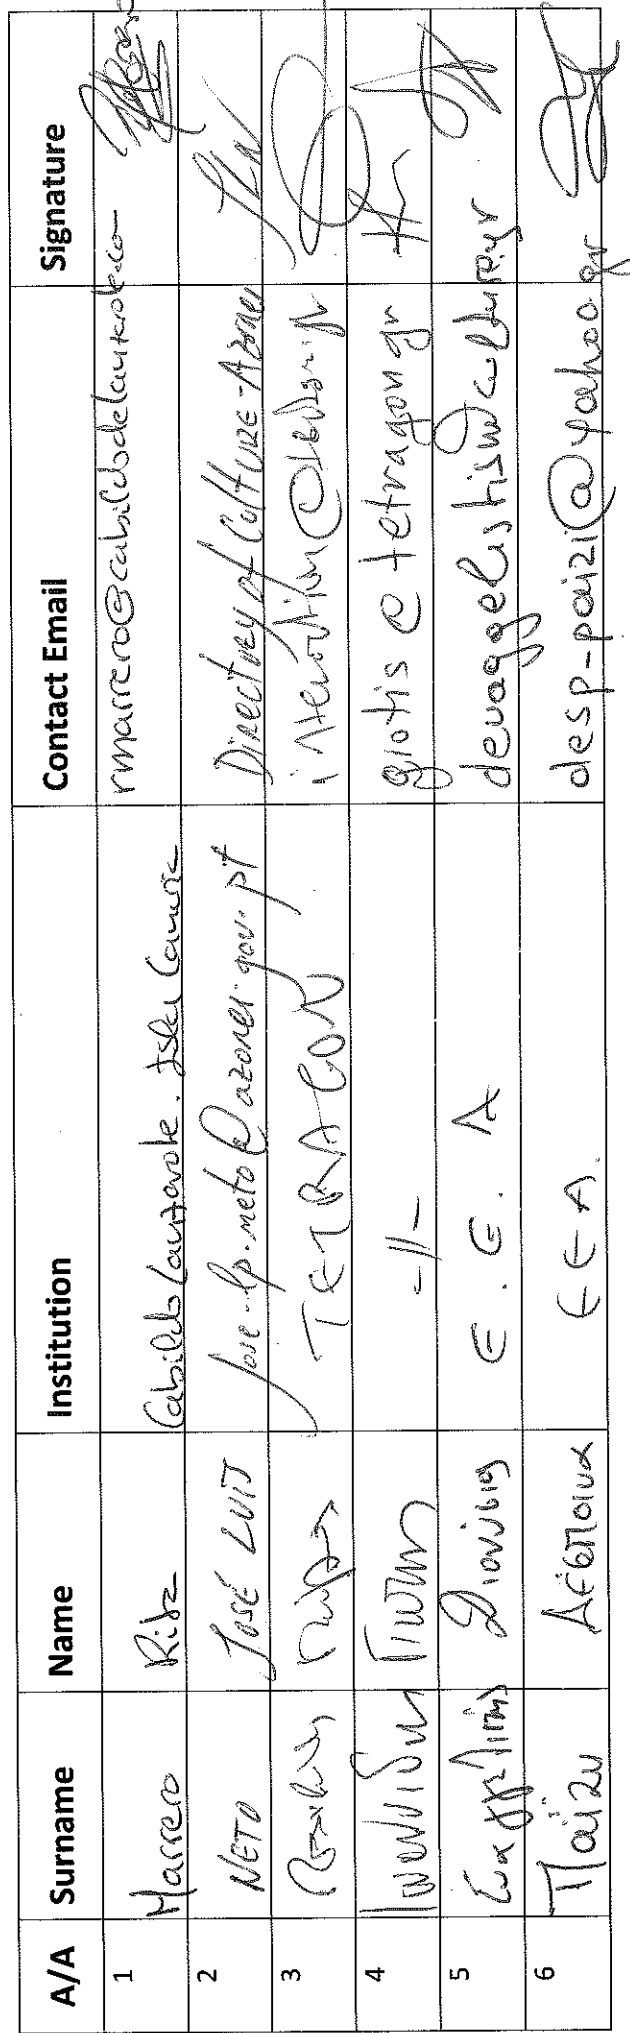 A/A Surname Name Institution Contact Email Signature
1 Marrero Rita Cabildo Lanzarote. Islas Canarias rmarrero@cabildodelanzarote.com
2 NETO JOSÉ LUIS jose-lp.neto@azores.gov.pt Directory of Culture-Azores
3 TETRAGON
4 Ιωαννίδης Γιώτης -//- giotis@tetragon.gr
5 Ευαγγελίστης Διονύσης Ε.Ε.Α devaggelistis@culture.gr
6 Παΐζη Δέσποινα ΕΕΑ. desp-paizi@yahoo.gr